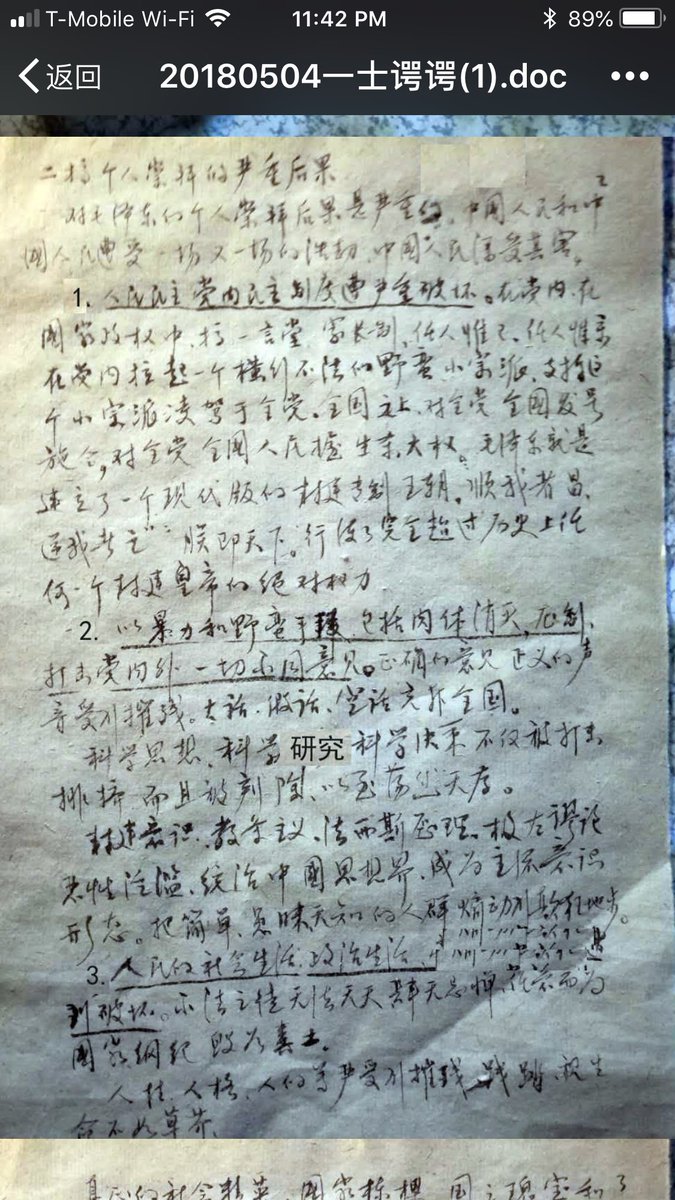 T-Mobile Wi-Fi 11:42 PM 89%
返回 20180504一士谔谔(1).doc •••
二 搞个人崇拜的严重后果
对毛泽东的个人崇拜后果是严重的，中国人民和中
国人民遭受一场又一场的浩劫，中国人民深受其害。
1. 人民民主党内民主制度遭严重破坏。在党内、在
國家政权中，搞一言堂、家长制、任人惟己、任人惟亲
在党内拉起一个横行不法的野蛮小宗派，支持
个小宗派凌驾于全党、全国之上，对全党全国发号
施令，对全党全國人民握生杀大权。毛泽东就是
建立了一个现代版的封建专制王朝，顺我者昌、
逆我者亡"朕即天下"。行使了完全超过历史上任
何一个封建皇帝的绝对权力
2. 以暴力和野蛮手 包括肉体消灭，压制、
打击党内外一切不同意见。正确的意见正义的声
音受到摧残。大话、假话、空话充斥全国。
科学思想、科学研究科学决策不仅被打击
排挤而且被剷除，以至荡然无存。
封建意识、教条主义、法西斯 理、极左谬论
恶性泛滥，统治中國思想界，成为主流意识
形态。把简单、愚昧无知的人群煽动到 地步。
3. 人民的社会生活、政治生活、 遭
到破坏。不法之徒无法无天肆无忌惮 为
國家綱纪毁为粪土。
人性、人格、人的尊严受到摧残、践踏、视生
命不如草芥。
真正的社会精英、国家栋樑、国之瑰宝和